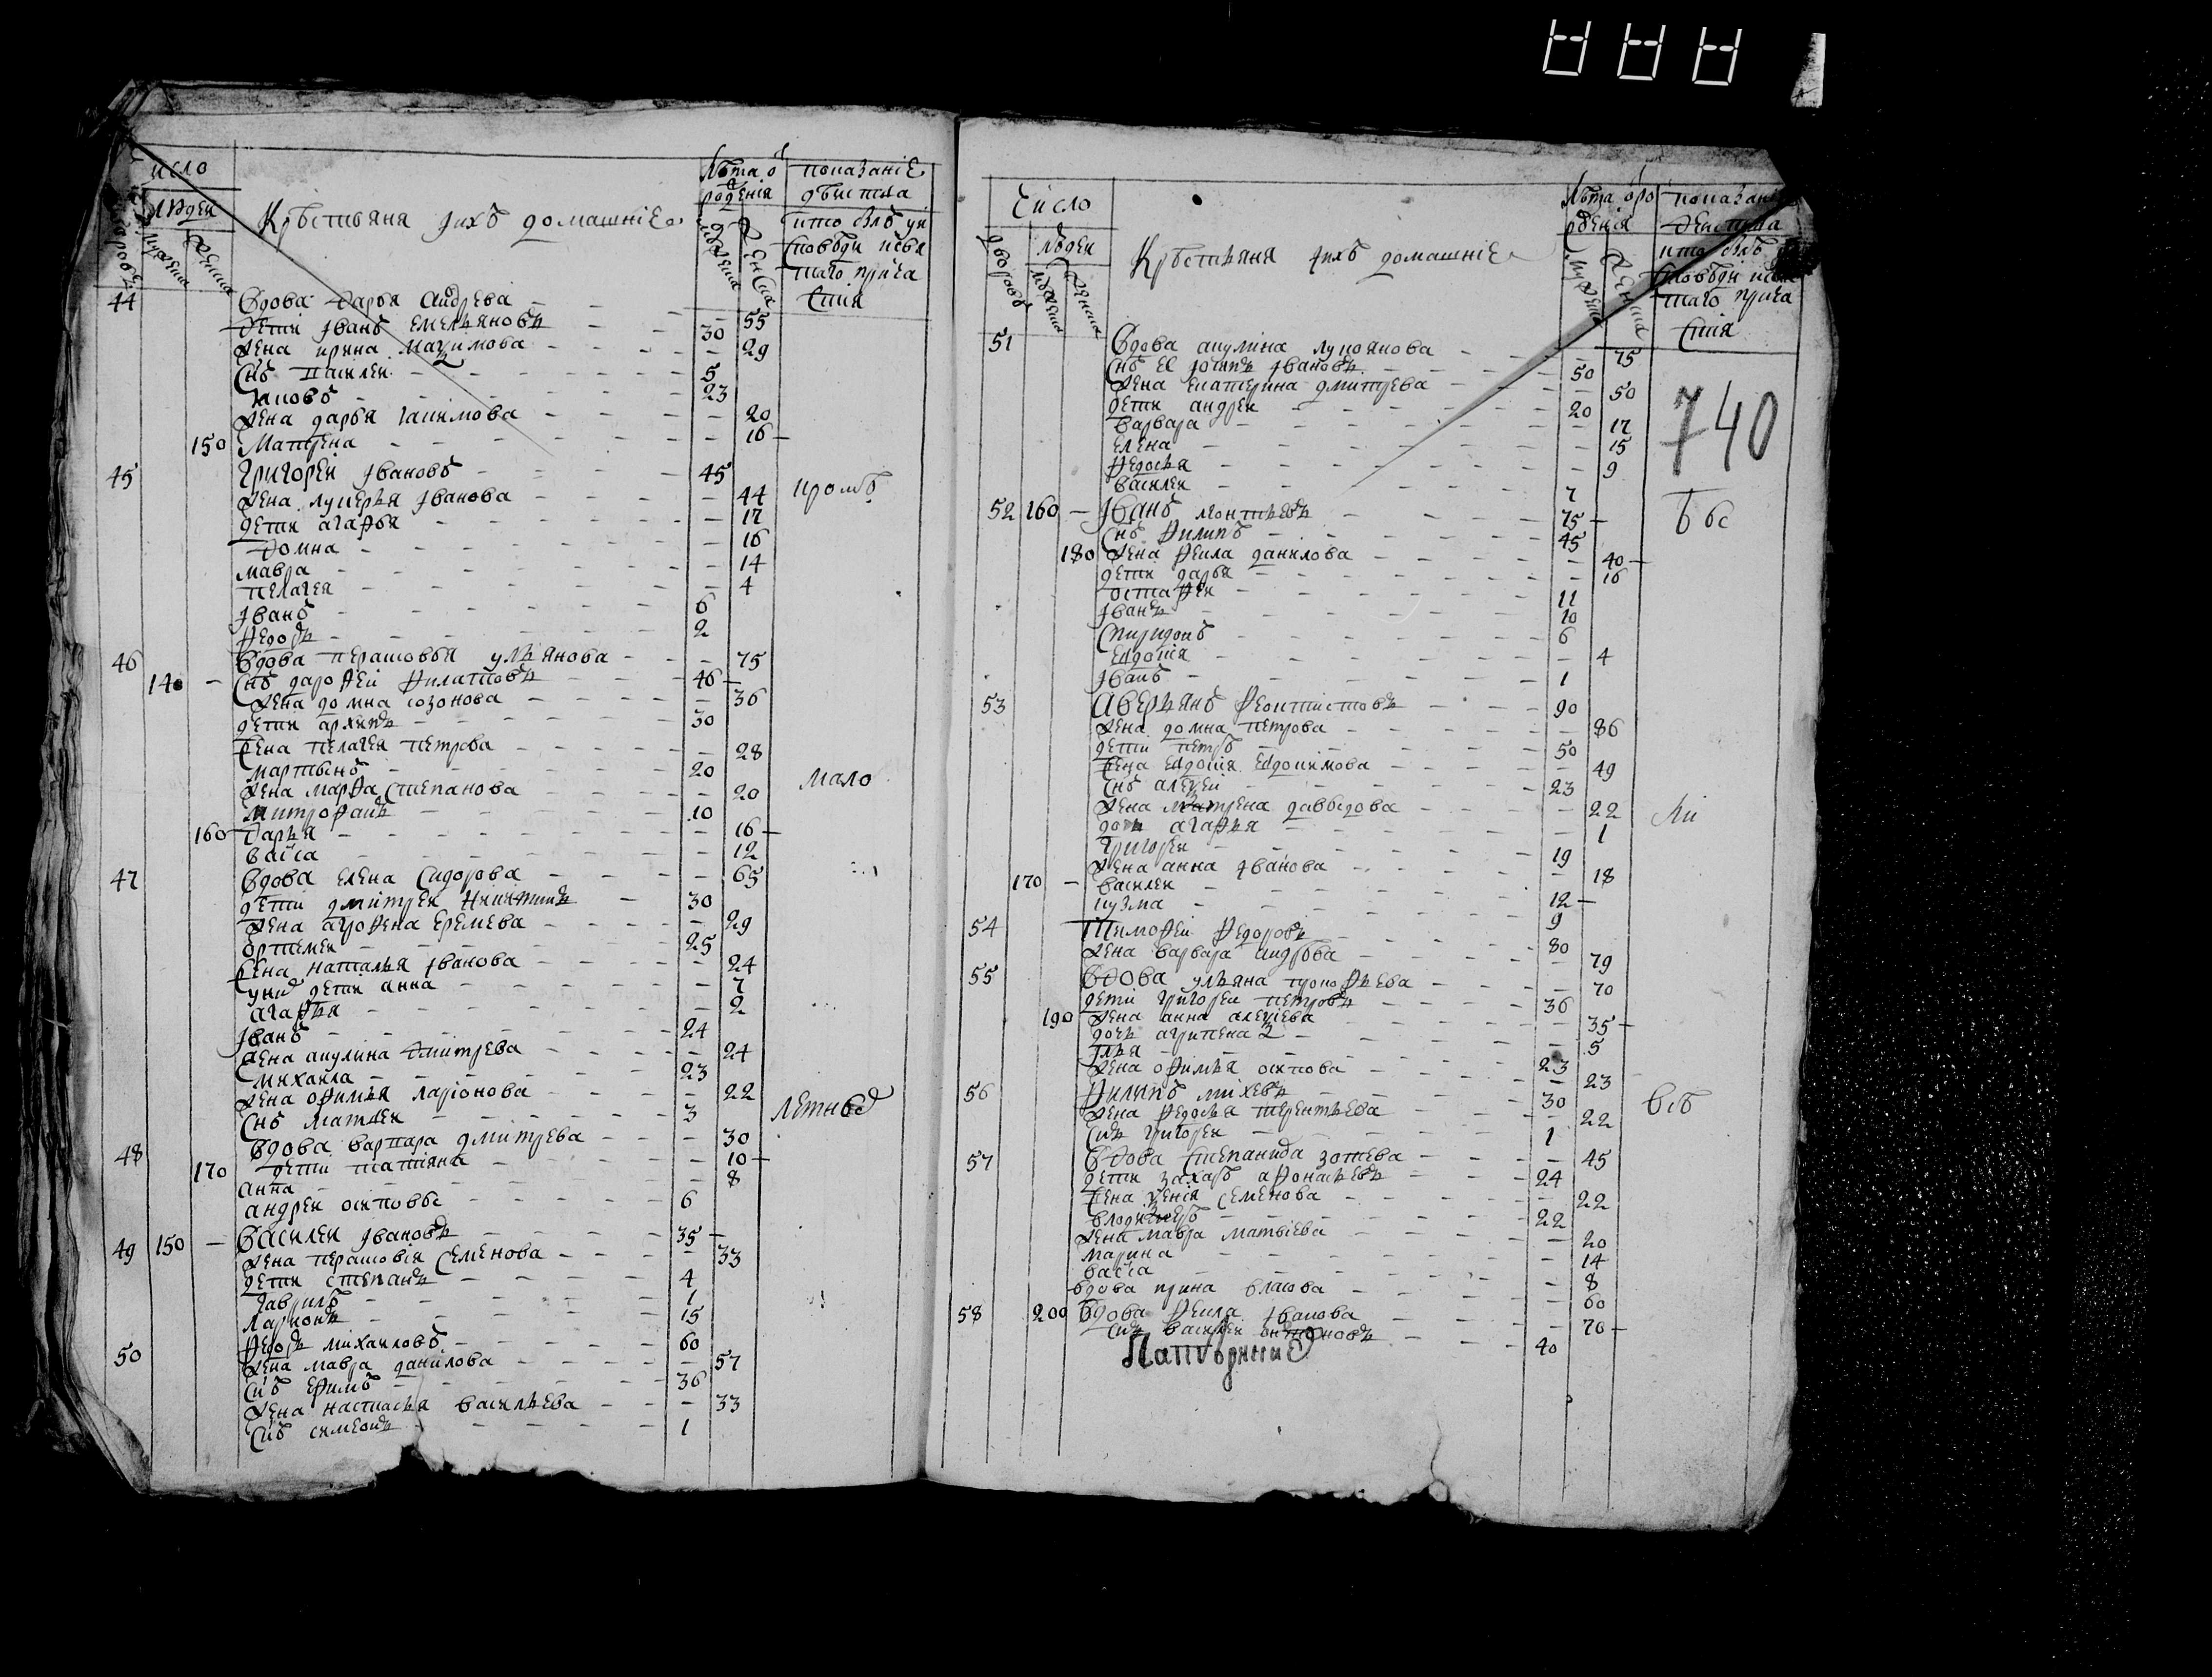 число
людей
Кръстьяня ихъ домашніе
лѣта о
роденія
показаніе
кто былъ у и
споведи и свя
таго прича
стія
44 Вдова Дарья андрева - 55
дети Iванъ Емельяновъ - 30
жена ирина Мазимова - 29
Снъ Василеи - 5
Яковъ - 23
жена дарья iакимова - 20
150 Матрена - 16 -
45 Григореи Iвановъ - 45
жена лукерья Iванова - 44
дети агафья - 17
Домна - 16
мавра - 14
пелагея - 4
Iванъ - 6
Федоръ - 2
46 Вдова перасковья ульянова - 75
140 - Снъ дарофеи Филатовъ - 46 -
жена домна созонова - 36
дети архипъ - 30
жена пелагея петрова - 28
мартынъ - 20
мало
жена марфа степанова - 20
Митрофанъ - 10
160 - дарья - 16 -
васса - 12
47 Вдова елена Сидорова - 65
дети дмитреи Никитинъ - 30
жена агрофена Еремева - 29
ортемеи - 25
жена наталья Iванова - 24
у них дети анна - 7
агафья - 2
Iванъ - 24
жена акулина Дмитрева - 24
михаила - 23
жена офимья ларіонова - 22
Снъ матвеи - 3
48 Вдова варвара дмитрева - 30
170 дети татіяна - 10 -
анна - 8
андреи осиповы - 6
49 150 - Василеи Iвановъ - 35 -
жена перасковія Семенова - 33
дети степанъ - 4
Гаврилъ - 1
ларионъ - 15
50 Федоръ михаиловъ - 60
жена мавра данилова - 57
Снъ ефимъ - 36
жена настасья васильева - 33
Снъ симеонъ - 1
Число
людеи
Кръстьяня ихъ домашніе
740
51 Вдова акулина лукоянова - 75
Снъ ее Iосипъ Iвановъ - 50
жена екатерина дмитрева - 50
дети андреи - 20
варвара - 17
елена - 15
Федосья - 9
василеи - 7
52 160 - Iванъ леонтьевъ - 75 -
Снъ Филипъ - 45
180 жена Фекла данилова - 40 -
дети дарья - 16
остафеи - 11
Iванъ - 10
Спиридонъ - 6
евдокія - 4
Iванъ - 1
53 Аверьянъ Феоктистовъ - 90
жена домна петрова - 86
дети петръ - 50
жена евдокія Евдокимова - 49
Снъ алезеи - 23
жена матрена давыдова - 22
дочь агафья - 1
Григореи - 19
жена анна Iванова - 18
170 - василеи - 12 -
кузма - 9
54 Тимофеи Федоровъ - 80
жена варвара андрова - 79
55 Вдова ульяна прокофьева - 70
дети Григореи петровъ - 36
190 жена анна алезіева - 35 -
дочь агрипена - 5
Iлья - 23
жена офимья осипова - 23
56 Филипъ михевъ - 30
жена Федосья терентьева - 22
Снъ григореи - 1
57 Вдова степанида зотева - 45
дети захаръ афонасьевъ - 24
жена зенія Семенова - 22
владимеръ - 22
жена мавра матвіева - 20
марина - 14
васса - 8
вдова ирина власова - 60
58 200 Вдова Фекла Iванова - 70 -
Снъ василеи - 40